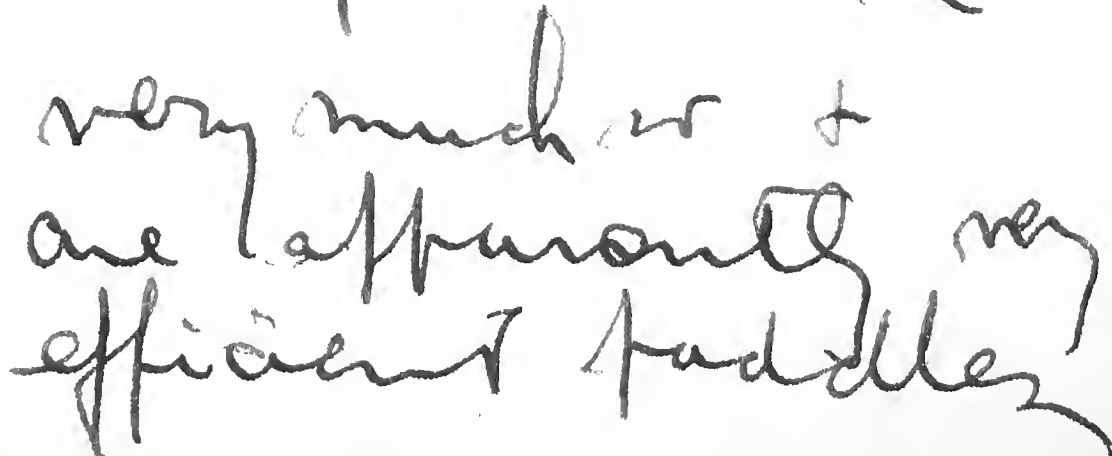 very much so +
are apparently very
efficient paddlers